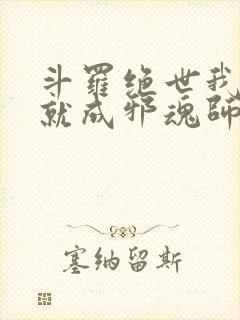 斗羅绝世我
就成邪魂師
塞纳留斯